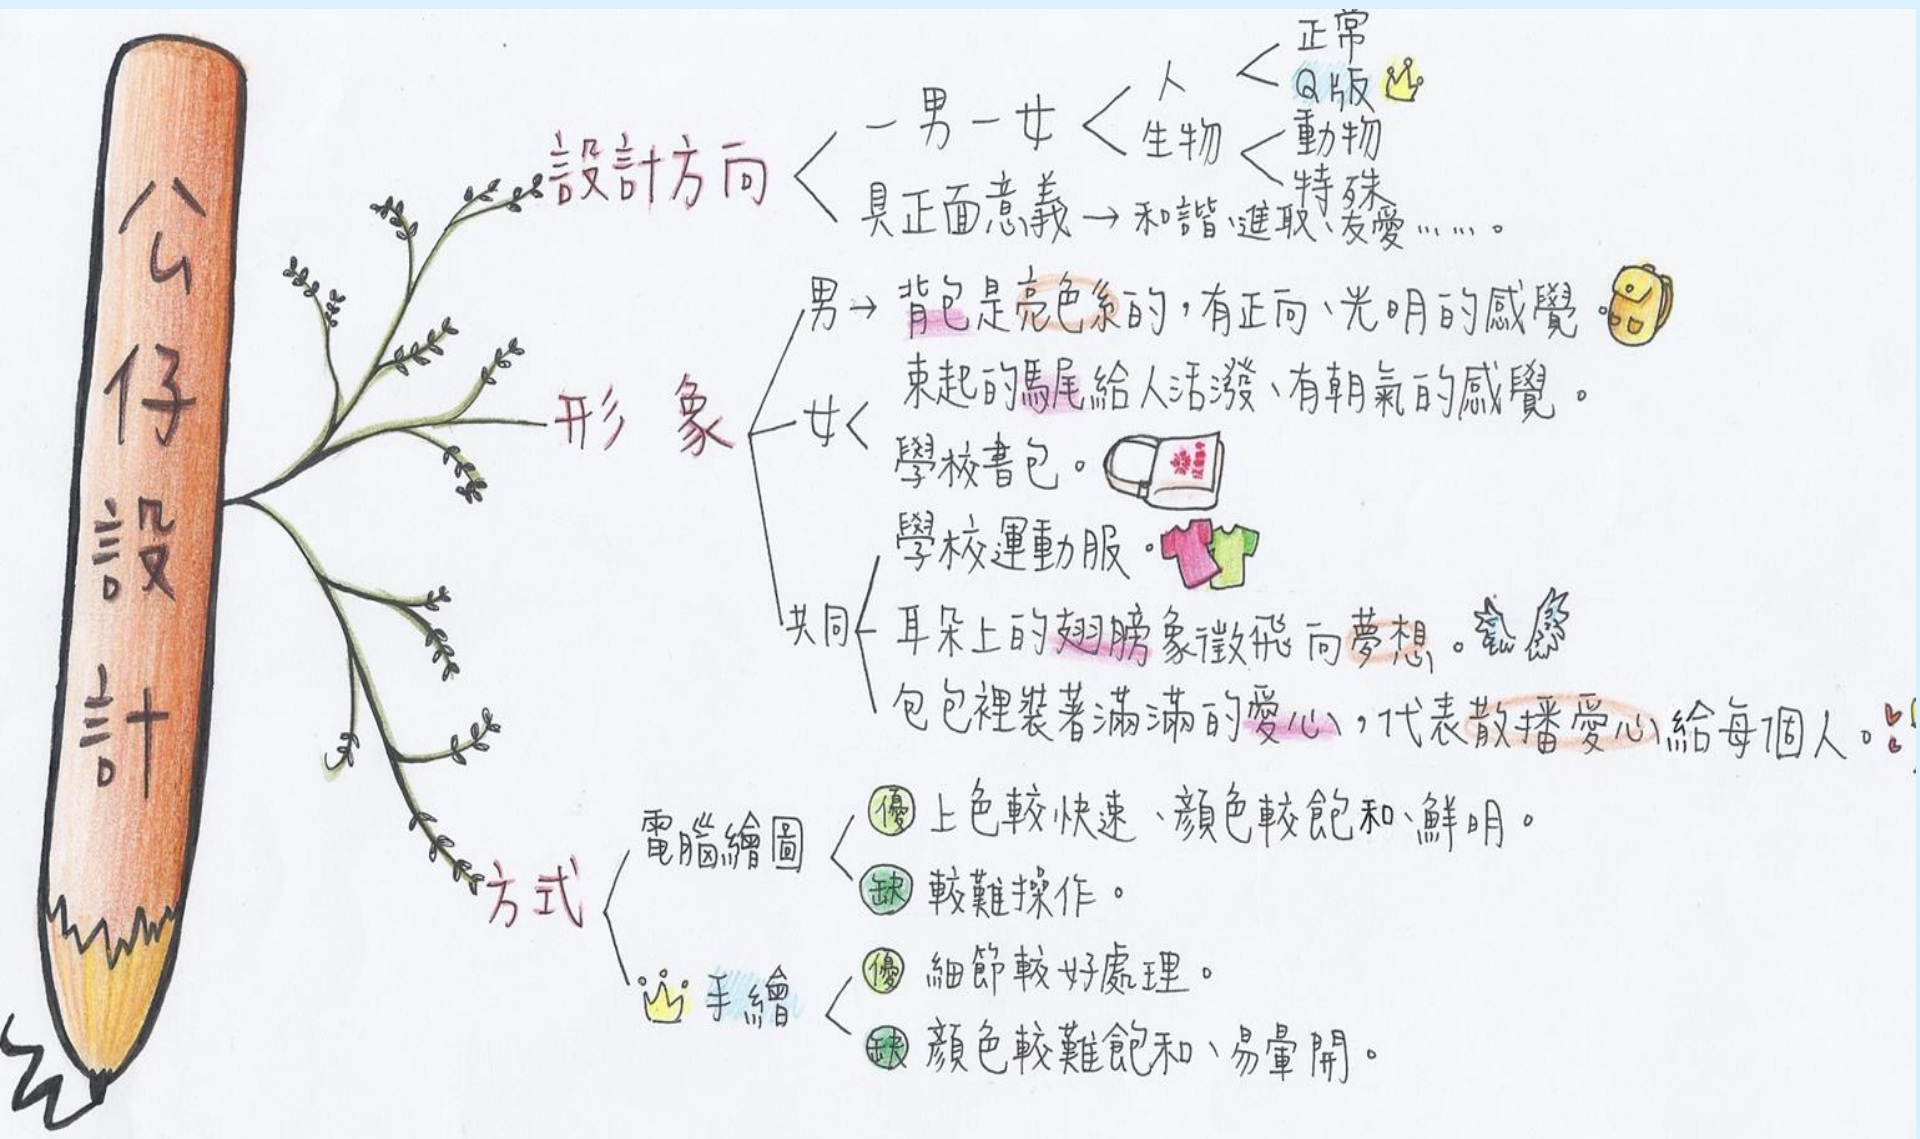 公仔設計
設計方向
一男一女
人
正常
Q版
生物
動物
特殊
具正面意義→和諧、進取、友愛……。
形象
男→背包是亮色系的，有正向、光明的感覺。
女
束起的馬尾給人活潑、有朝氣的感覺。
學校書包。
共同
學校運動服。
耳朵上的翅膀象徵飛向夢想。
包包裡裝著滿滿的愛心，代表散播愛心給每個人。
方式
電腦繪圖
優 上色較快速、顏色較飽和、鮮明。
缺 較難操作。
手繪
優 細節較好處理。
缺 顏色較難飽和、易暈開。